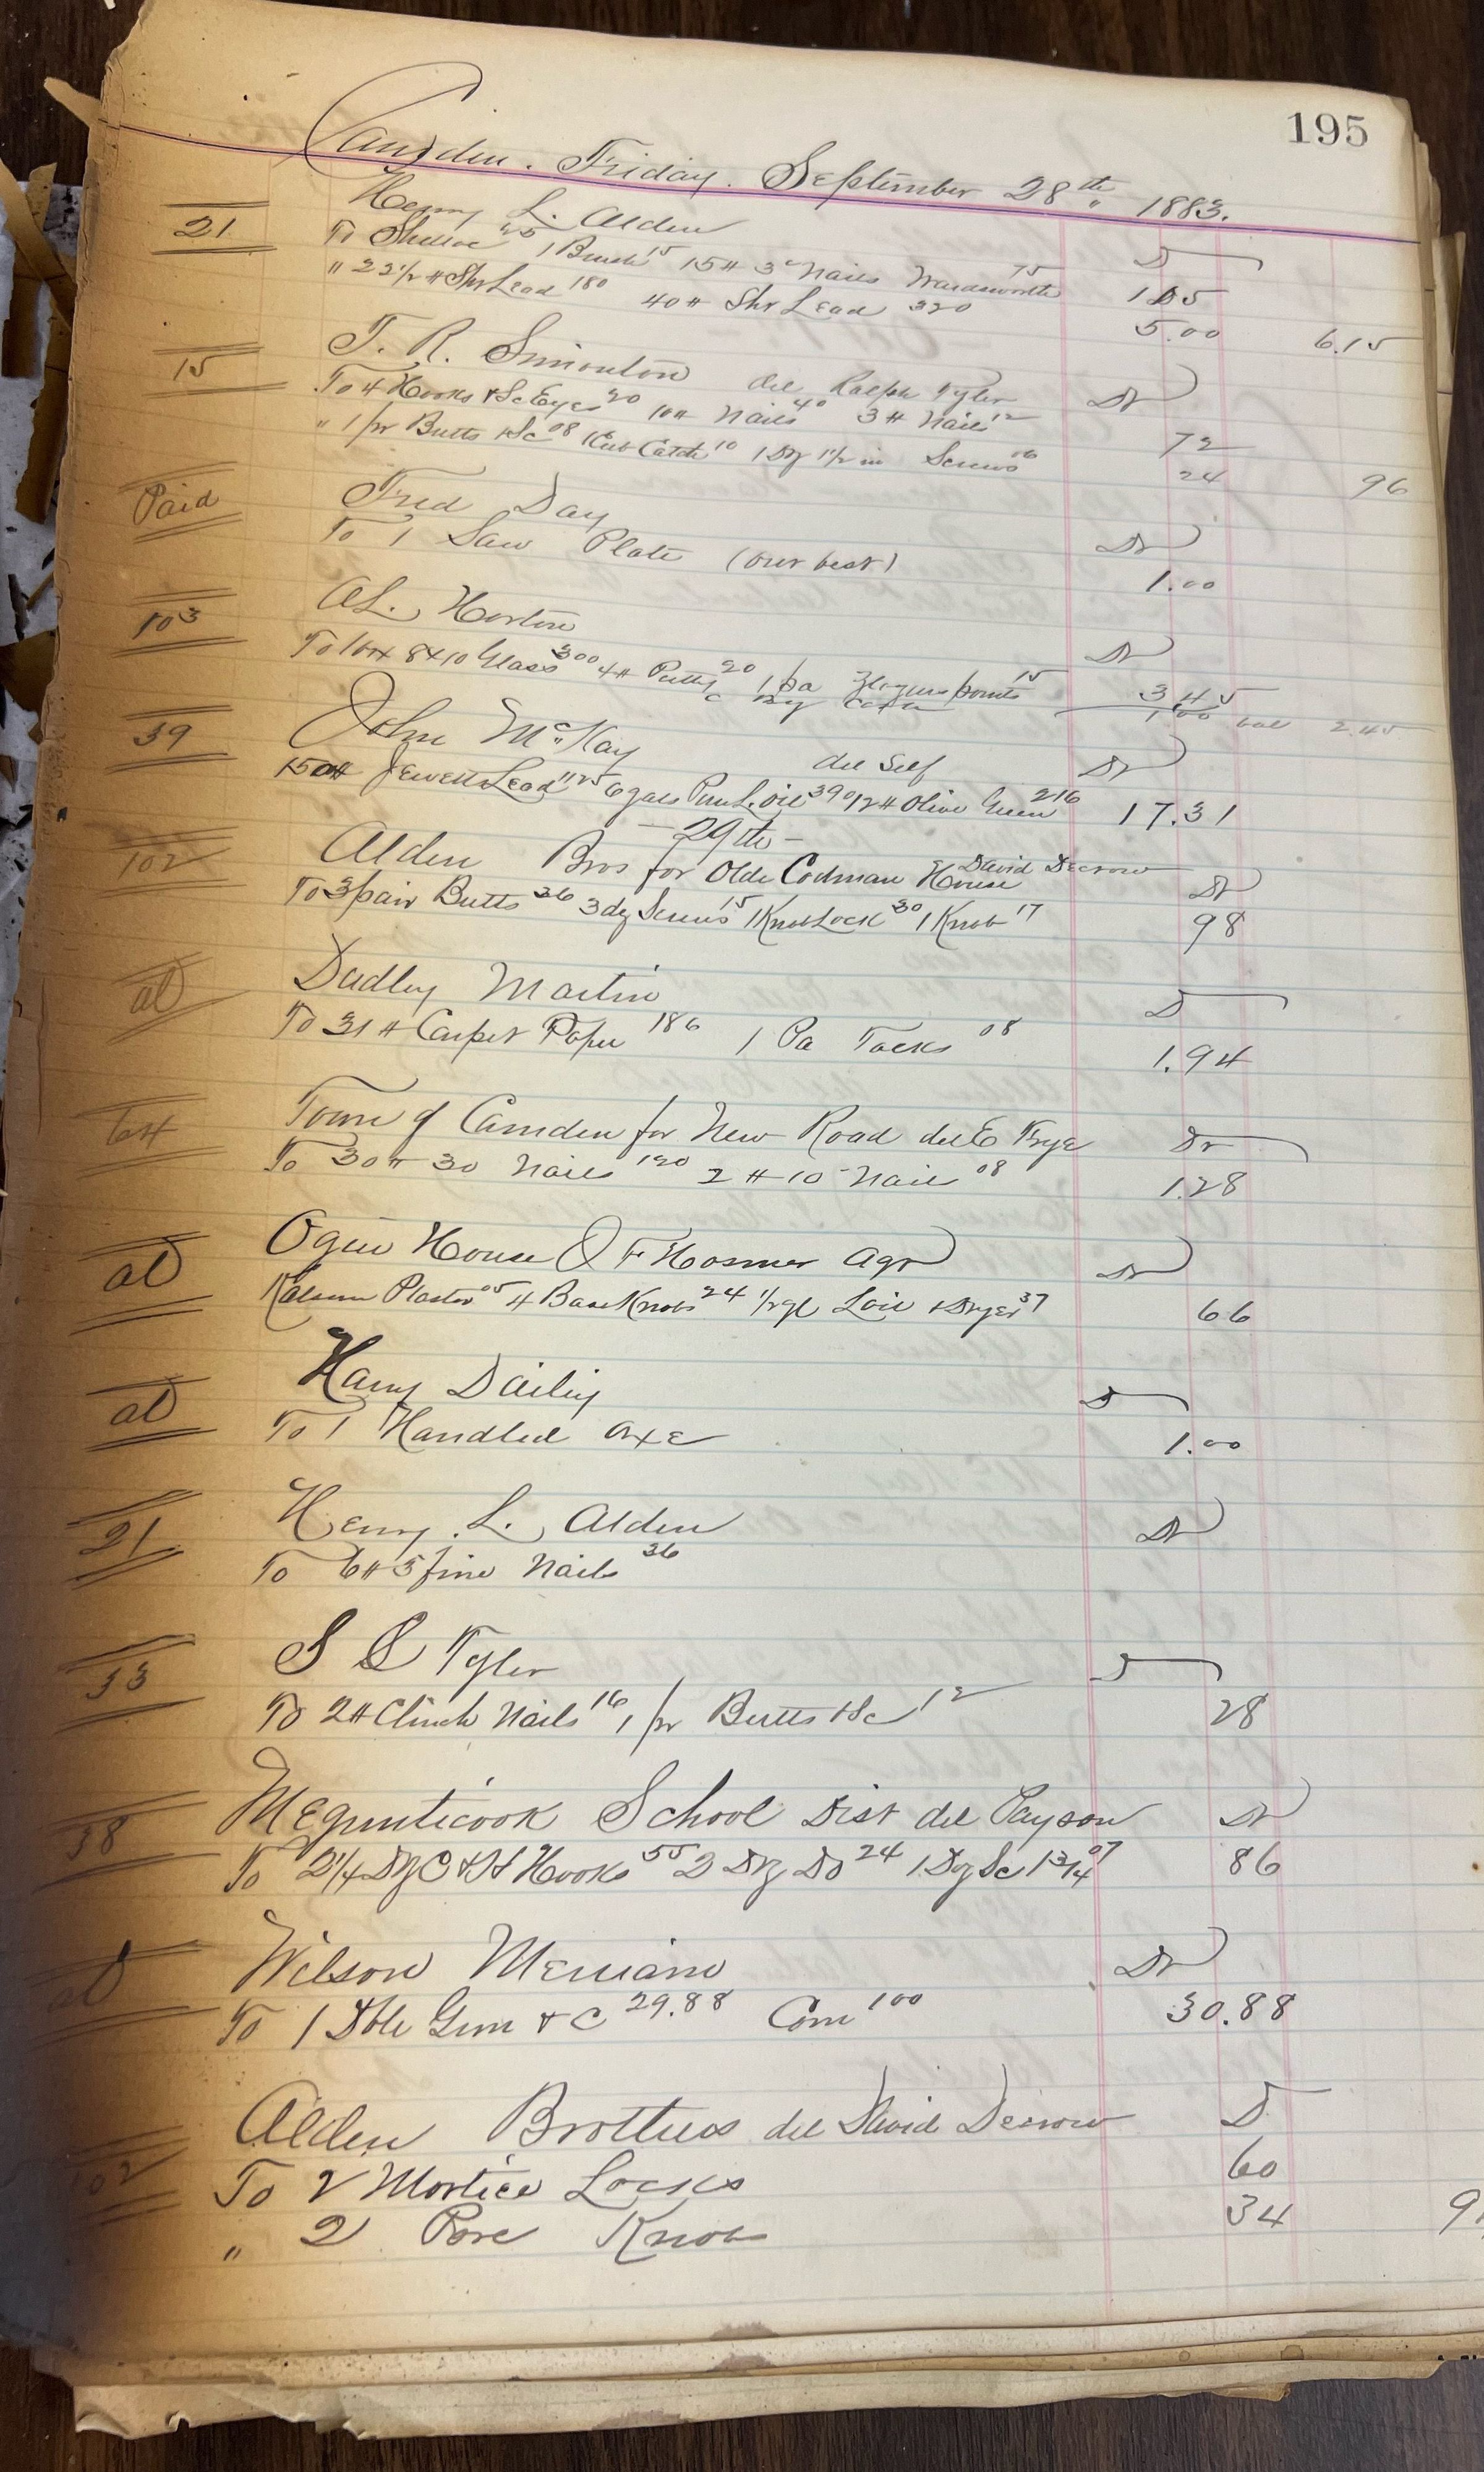 195
Camden. Friday. September 28th 1883.
21 Henry L. Alden Dr
To Shellac 25 1 Brush 15 15# 3d Nails Wardsworth 75 1.15
" 22 1/2 # Sht Lead 180 40# Sht Lead 320 5.00 6.15
15 T. R. Simonton del Ralph Tyler Dr
To 4 Hooks & Sc Eyes 20 10# Nails 40 3# Nails 12 72
" 1 pr Butts & Sc 08 1 Cub Catch 10 1 Dz 1 1/2 in Screws 06 24 96
Paid Fred Day Dr
To 1 Saw Plate (our best) 1.00
103 A L. Horton Dr
To 1 box 8x10 Glass 300 4# Putty 20 1 pa points 15 3 45
C By Cash 1.00 bal 2.45
39 John McKay del Self Dr
150# Jewetts Lead 1125 6 gals Pure L. Oil 390 12# Olive Green 216 17.31
- 29th -
102 Alden Bros for Olde Codman House David Decrow Dr
To 3 pair Butts 36 3 dz Screws 15 1 Knob Lock 30 1 Knob 17 98
al Dudley Martin Dr
To 31# Carpet Paper 186 1 Pa Tacks 08 1.94
64 Town of Camden for New Road del E Frye Dr
To 30# 30 Nails 120 2# 10 Nails 08 1.28
al Ogier House F Hosmer Agt Dr
Kalsum Plaster 05 4 Base Knobs 24 1/2 gl Loil & Dryer 37 66
al Harry Dailey Dr
To 1 Handled Axe 1.00
21 Henry L. Alden Dr
To 6# 3 fine Nails 36
33 S S Tyler Dr
To 2# Clinch Nails 16 1 pr Butts & Sc 12 28
38 Megunticook School Dist del Payson Dr
To 2 1/4 Dz C & H Hooks 55 2 Dz Do 24 1 Dz Sc 1 3/4 07 86
al Wilson Merriam Dr
To 1 Dble Gun & C 29.88 Com 100 30.88
102 Alden Brothers del David Decrow Dr
To 2 Mortice Locks 60
" 2 Porc Knobs 34 9